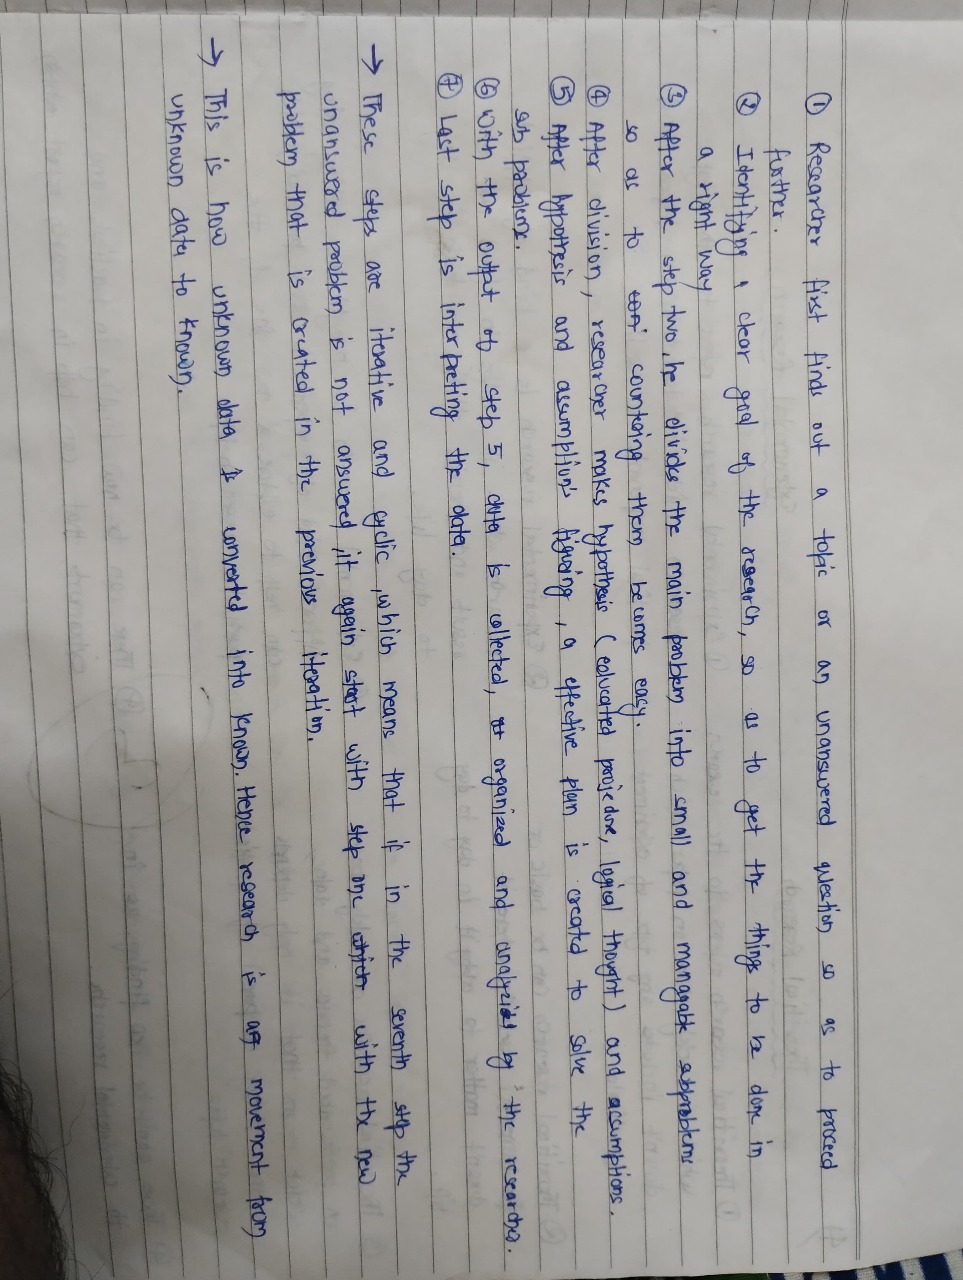 ① Researcher first finds out a topic or an unanswered question so as to proceed
further.
② Identifying a clear goal of the research, so as to get the things to be done in
a right way
③ After the step two, he divides the main problem into small and managable subproblems
so as to countering them becomes easy.
④ After division, researcher makes hypothesis (educated projedure, logical thought) and assumptions.
⑤ After hypothesis and assumption's figuring, a effective plan is created to solve the
sub problems.
⑥ with the output of step 5, data is collected, organized and analyzied by the researcher.
⑦ Last step is interpreting the data.
→ These steps are iterative and cyclic, which means that if in the seventh step the
unanswered problem is not answered, it again start with step one with the new
problem that is created in the previous iteration.
→ This is how unknown data is converted into known. Hence research is a movement from
unknown data to known.